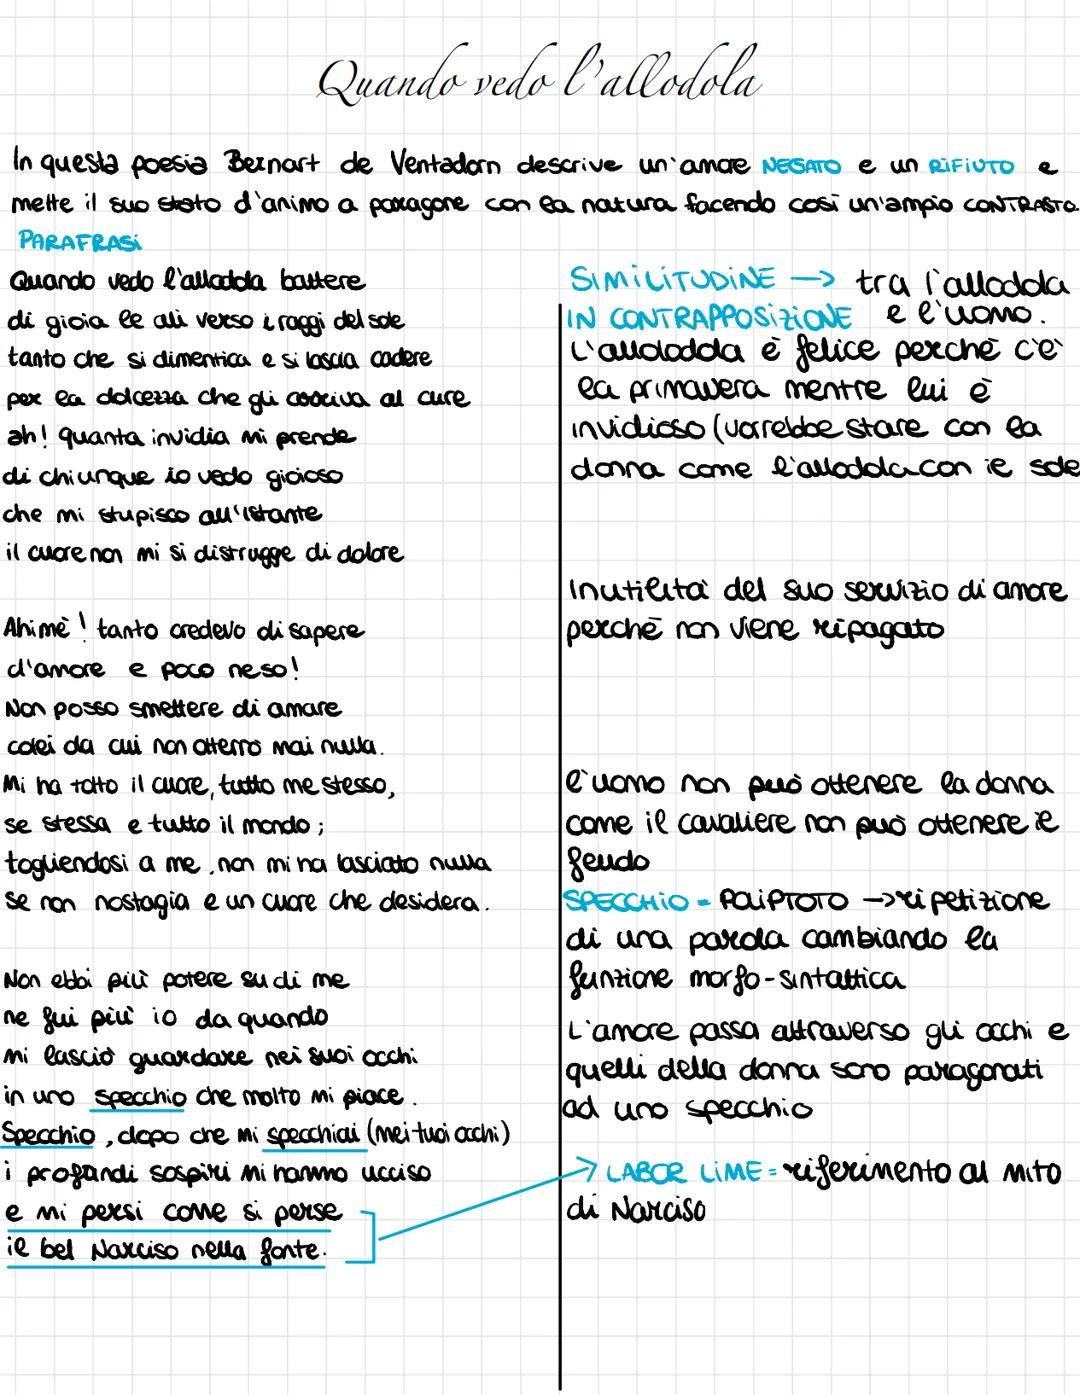 Quando vedo l'allodola
In questa poesia Bernart de Ventadorn descrive un'amore NEGATO e un RIFIUTO e
mette il suo stato d'animo a paragone con la natura facendo così un'ampio CONTRASTO.
PARAFRASI
Quando vedo l'allodola battere
di gioia le ali verso i raggi del sole
tanto che si dimentica e si lascia cadere
per la dolcezza che gli arriva al cure
ah! quanta invidia mi prende
di chiunque io vedo gioioso
che mi stupisco all'istante
il cuore non mi si distrugge di dolore
Ahimè! tanto credevo di sapere
d'amore e poco ne so!
Non posso smettere di amare
colei da cui non otterrò mai nulla.
Mi ha tolto il cuore, tutto me stesso,
se stessa e tutto il mondo;
togliendosi a me, non mi ha lasciato nulla
se non nostagia e un cuore che desidera.
Non ebbi più potere su di me
ne fui più io da quando
mi lasciò guardare nei suoi occhi
in uno specchio che molto mi piace.
Specchio, dopo che mi specchiai (nei tuoi occhi)
i profondi sospiri mi hanno ucciso
e mi persi come si perse
il bel Narciso nella fonte.
SIMILITUDINE → tra l'allodola
IN CONTRAPPOSIZIONE e l'uomo.
L'allolodola è felice perchè c'è
la primavera mentre lui è
invidioso (vorrebbe stare con la
donna come l'allodola con il sole
Inutilità del suo servizio di amore
perchè non viene ripagato
l'uomo non può ottenere la donna
come il cavaliere non può ottenere il
feudo
SPECCHIO = POLIPTOTO → ripetizione
di una parola cambiando la
funzione morfo-sintattica
L'amore passa attraverso gli occhi e
quelli della donna sono paragonati
ad uno specchio
LABOR LIME = riferimento al mito
di Narciso